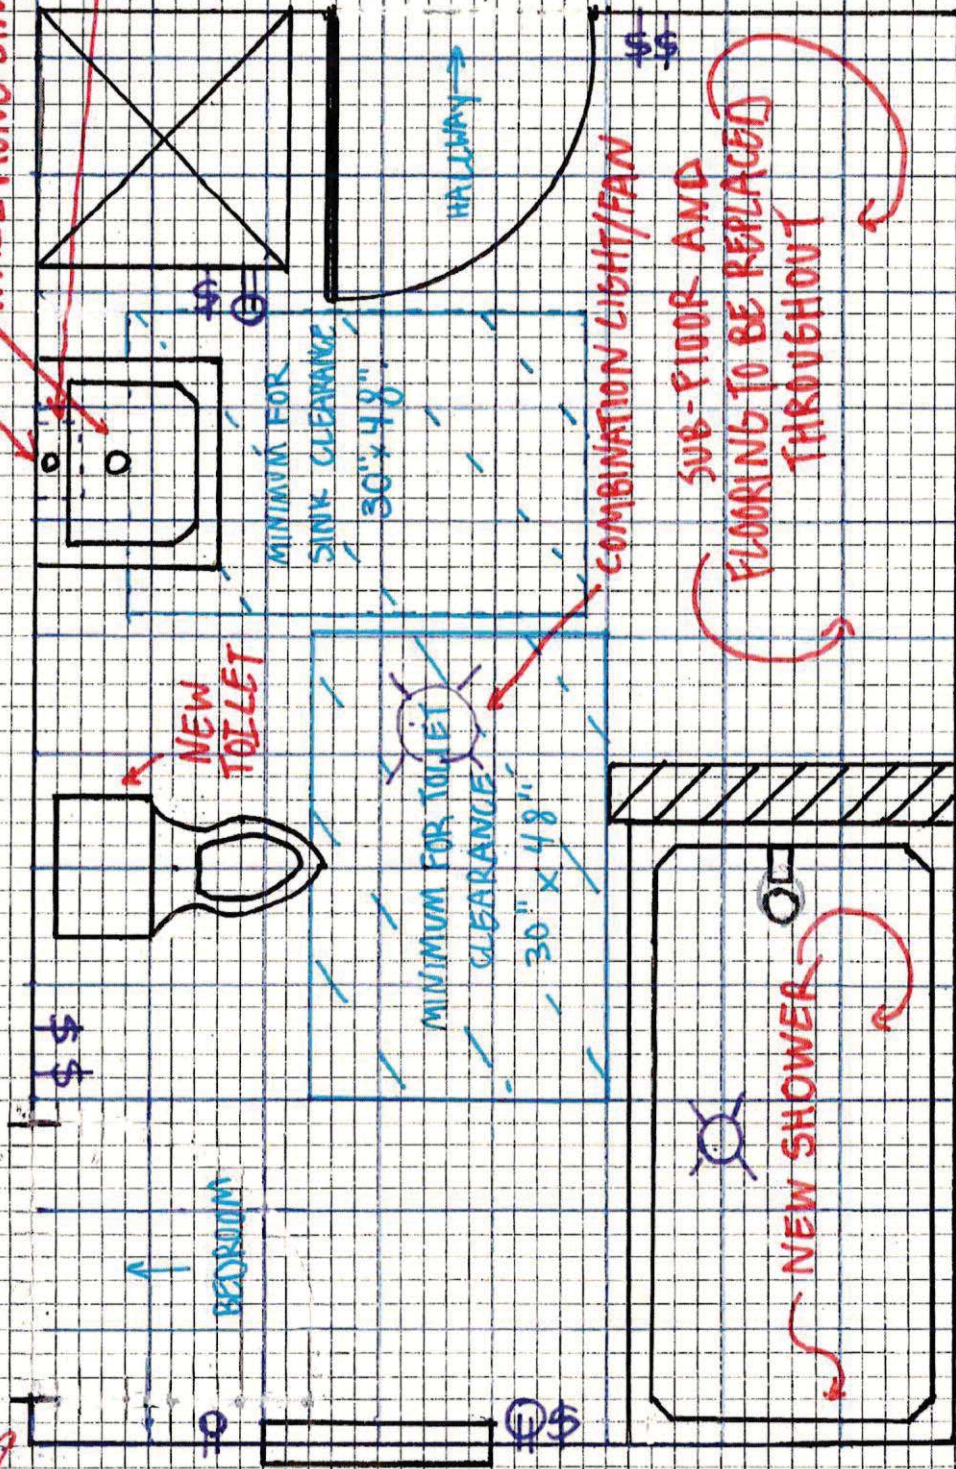 HALLWAY
$$
$
MINIMUM FOR
SINK CLEARANCE
30" x 48"
COMBINATION LIGHT/FAN
SUB-FLOOR AND
FLOORING TO BE REPLACED
THROUGHOUT
NEW
TOILET
MINIMUM FOR TOILET
CLEARANCE
30" x 48"
$$
BEDROOM
NEW SHOWER
$